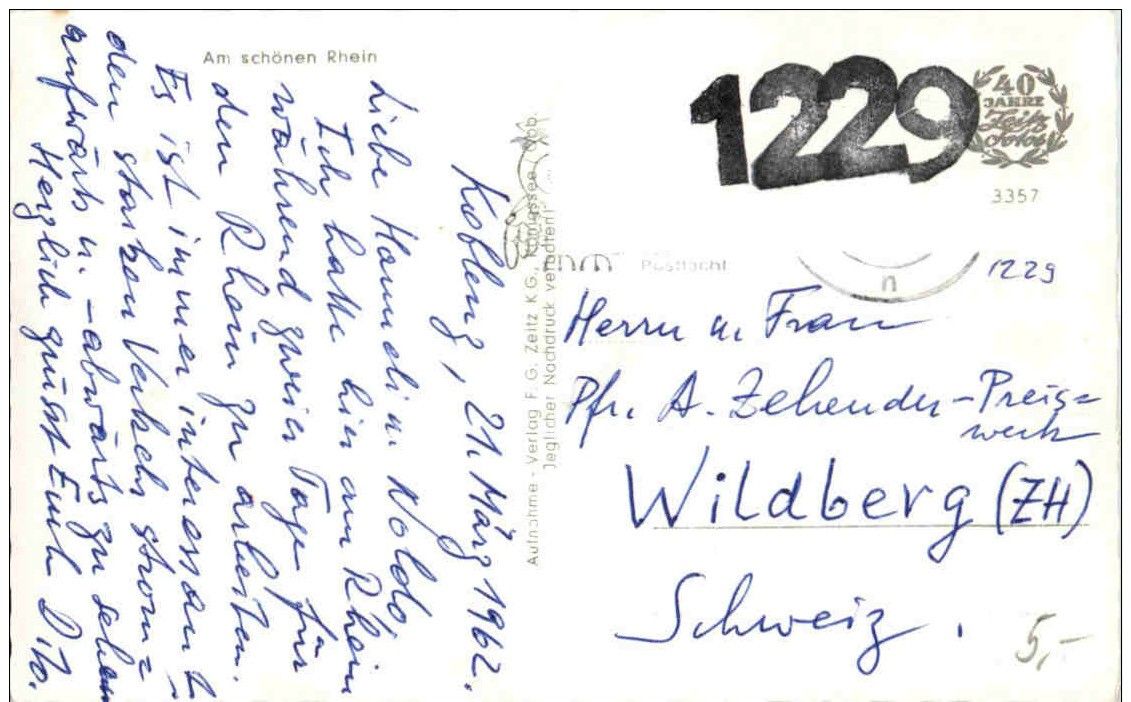 Am schönen Rhein
Koblenz, 21. März 1962.
Liebe Hanneli u. Noldo,
Ich hatte hier am Rhein
während zweier Tage für
den Rhein zu arbeiten.
Es ist immer interessant
den starken Verkehr strom=
aufwärts u. -abwärts zu sehen
Herzlich grüsst Euch Dito.
Aufnahme - Verlag F. G. Zeitz KG., Königssee / Obb.
Jeglicher Nachdruck verboten!
1229
40
JAHRE
Zeitz
Fotos
3357
Postfach!
n
1229
Herrn u. Frau
Pfr. A. Zehender-Preis=
werk
Wildberg (ZH)
Schweiz.
5,-